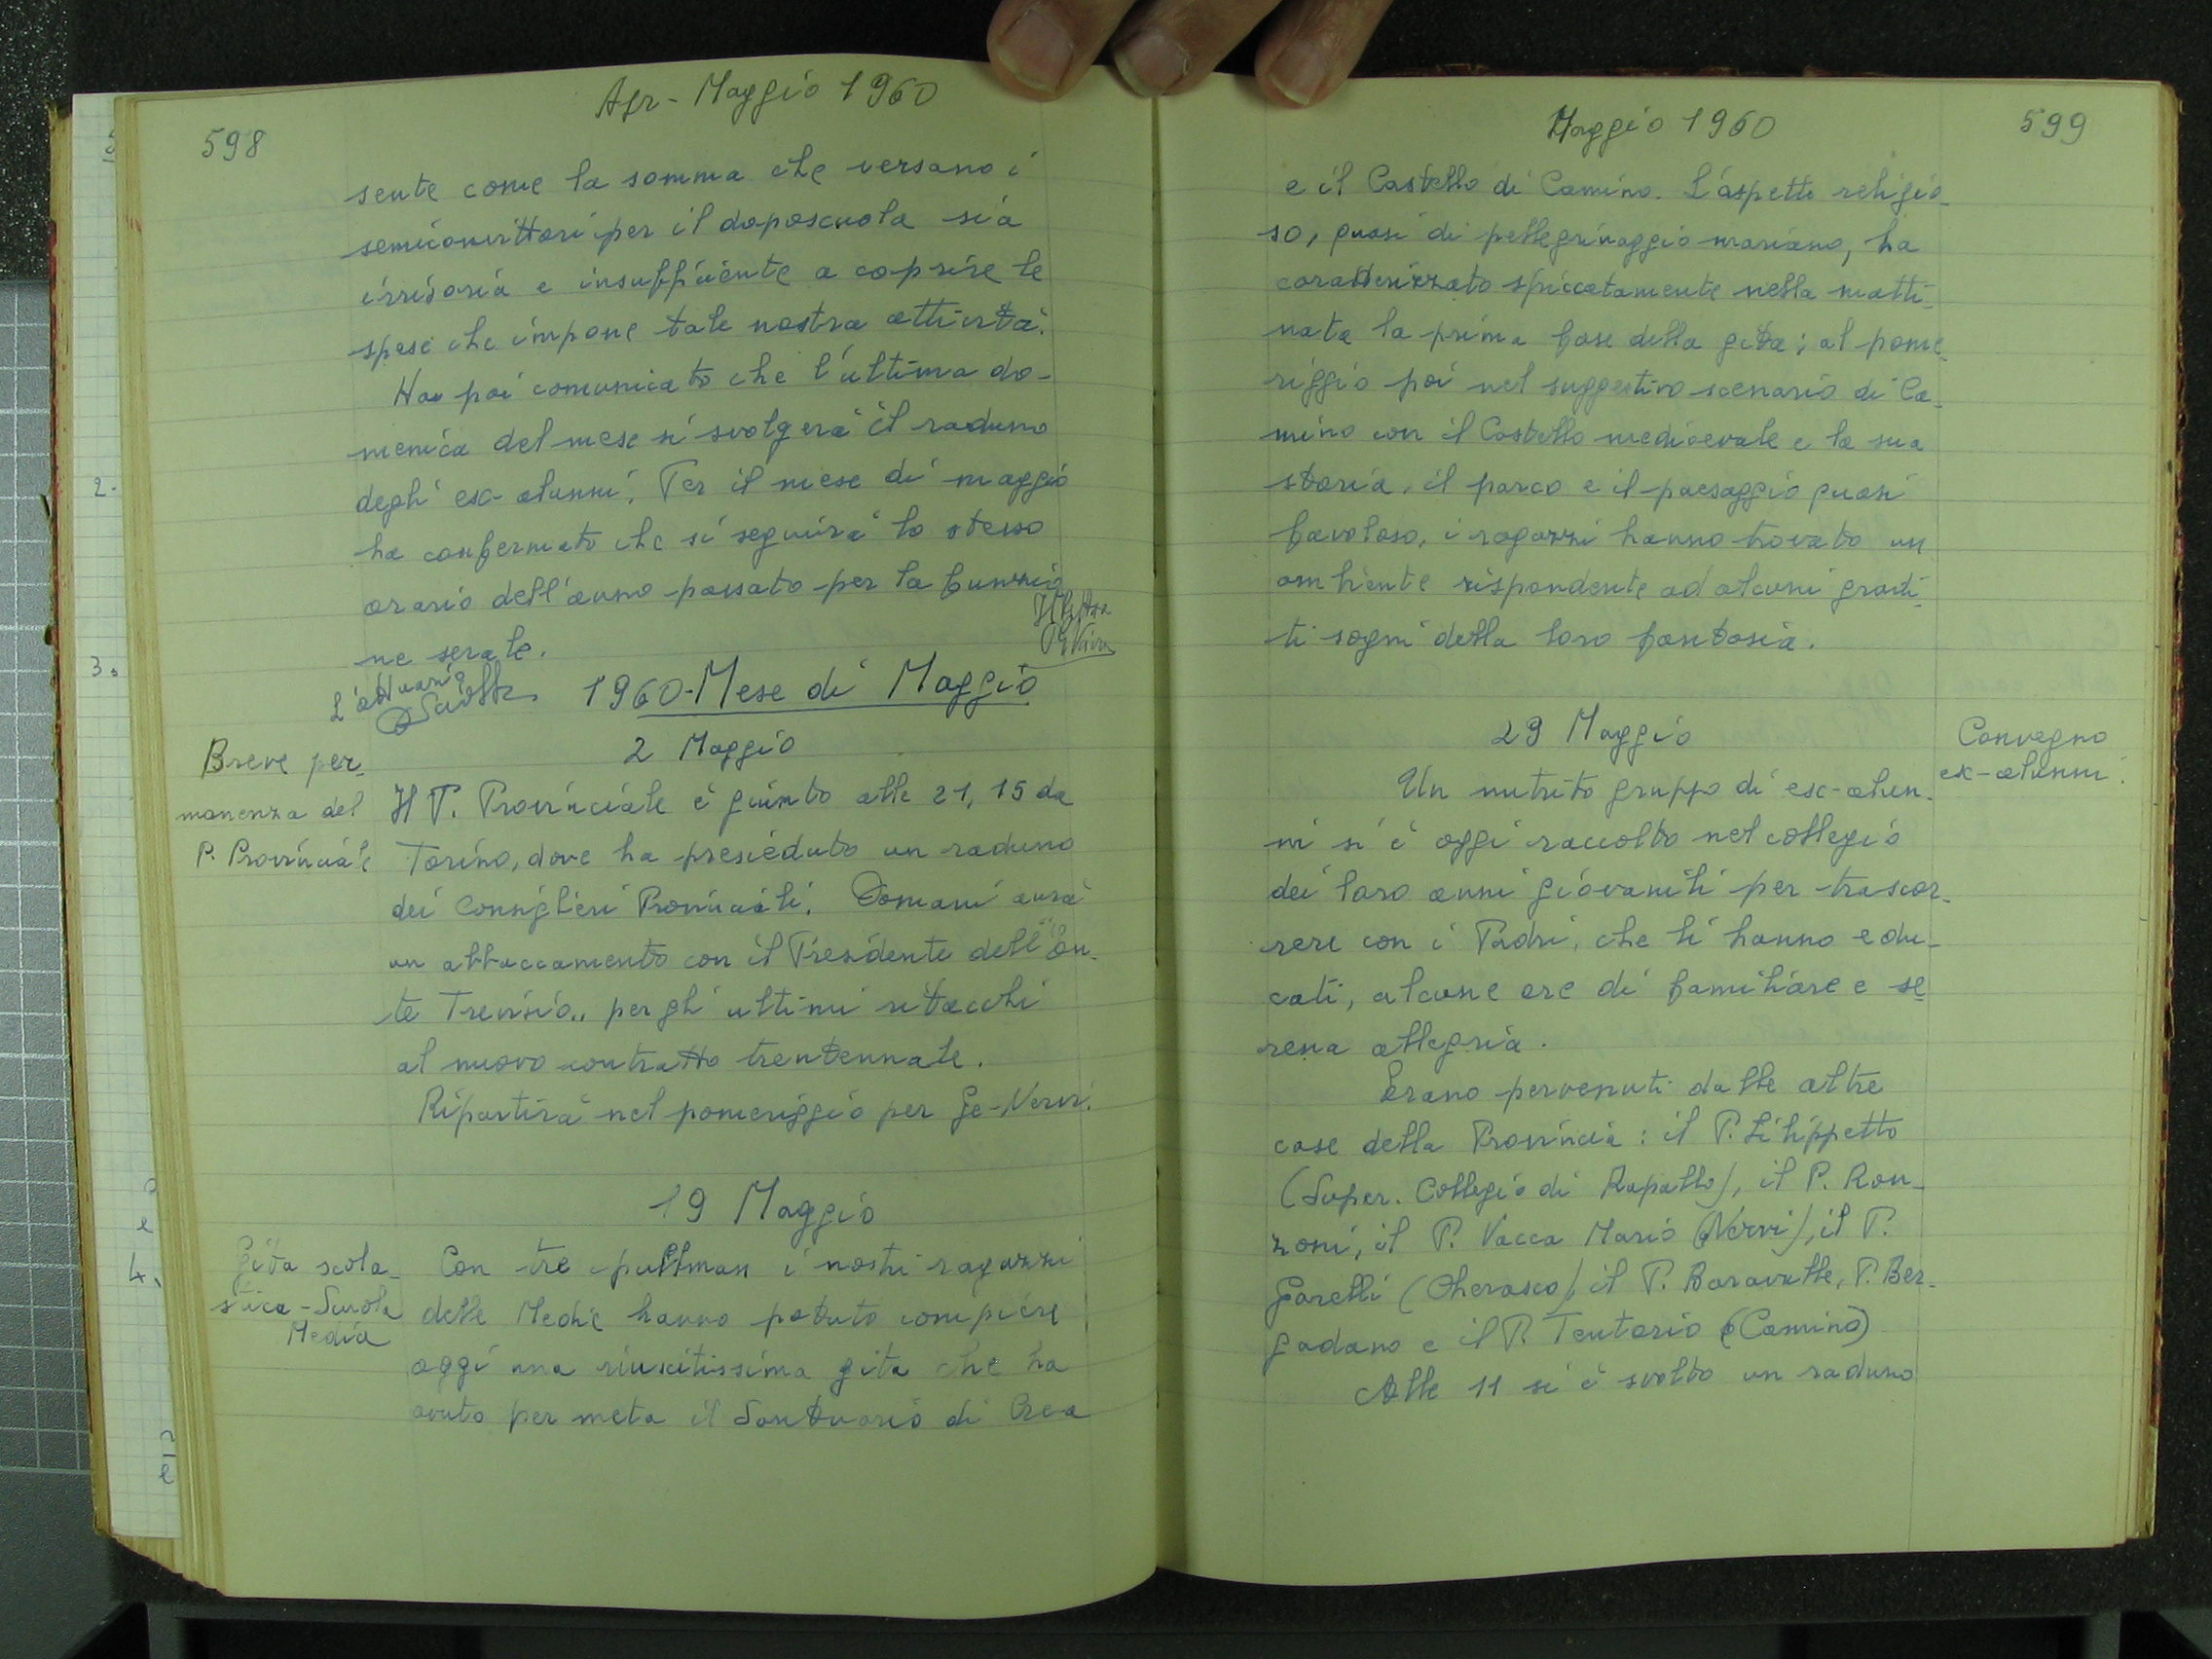 598
Apr - Maggio 1960
sente come la somma che versano i
semiconvittori per il doposcuola sia
irrisoria e insufficiente a coprire le
spese che impone tale nostra attività.
Ha poi comunicato che l'ultima do-
menica del mese si svolgerà il raduno
degli ex-alunni. Per il mese di maggio
ha confermato che si seguirà lo stesso
orario dell'anno passato per la funzio
ne serale.
L'attuario
1960-Mese di Maggio
2 Maggio
Breve per-
manenza del
P. Provinciale
Il P. Provinciale è giunto alle 21,15 da
Torino, dove ha presieduto un raduno
dei Consiglieri Provinciali. Domani avrà
un abboccamento con il Presidente dell'En-
te Trevisio., per gli ultimi ritocchi
al nuovo contratto trentennale.
Ripartirà nel pomeriggio per Ge-Nervi.
19 Maggio
Gita scola-
stica-Scuola
Media
Con tre pullman i nostri ragazzi
delle Medie hanno potuto compiere
oggi una riuscitissima gita che ha
avuto per meta il Santuario di Crea
Maggio 1960
599
e il Castello di Camino. L'aspetto religio-
so, quasi di pellegrinaggio mariano, ha
caratterizzato spiccatamente nella matti-
nata la prima fase della gita; al pome-
riggio poi nel suggestivo scenario di Ca-
mino con il Castello medioevale e la sua
storia, il parco e il paesaggio quasi
favoloso, i ragazzi hanno trovato un
ambiente rispondente ad alcuni gradi-
ti sogni della loro fantasia.
29 Maggio
Convegno
ex-alunni.
Un nutrito gruppo di ex-alun-
ni si è oggi raccolto nel collegio
dei loro anni giovanili per trascor-
rere con i Padri, che li hanno edu-
cati, alcune ore di familiare e se
rena allegria.
Erano pervenuti dalle altre
case della Provincia: il P. Filippetto
(Super. Collegio di Rapallo), il P. Ron-
zoni, il P. Vacca Mario (Nervi), il P.
Garelli (Cherasco), il P. Baravalle, P. Ber-
gadano e il P. Tentorio (Camino)
Alle 11 si è svolto un raduno